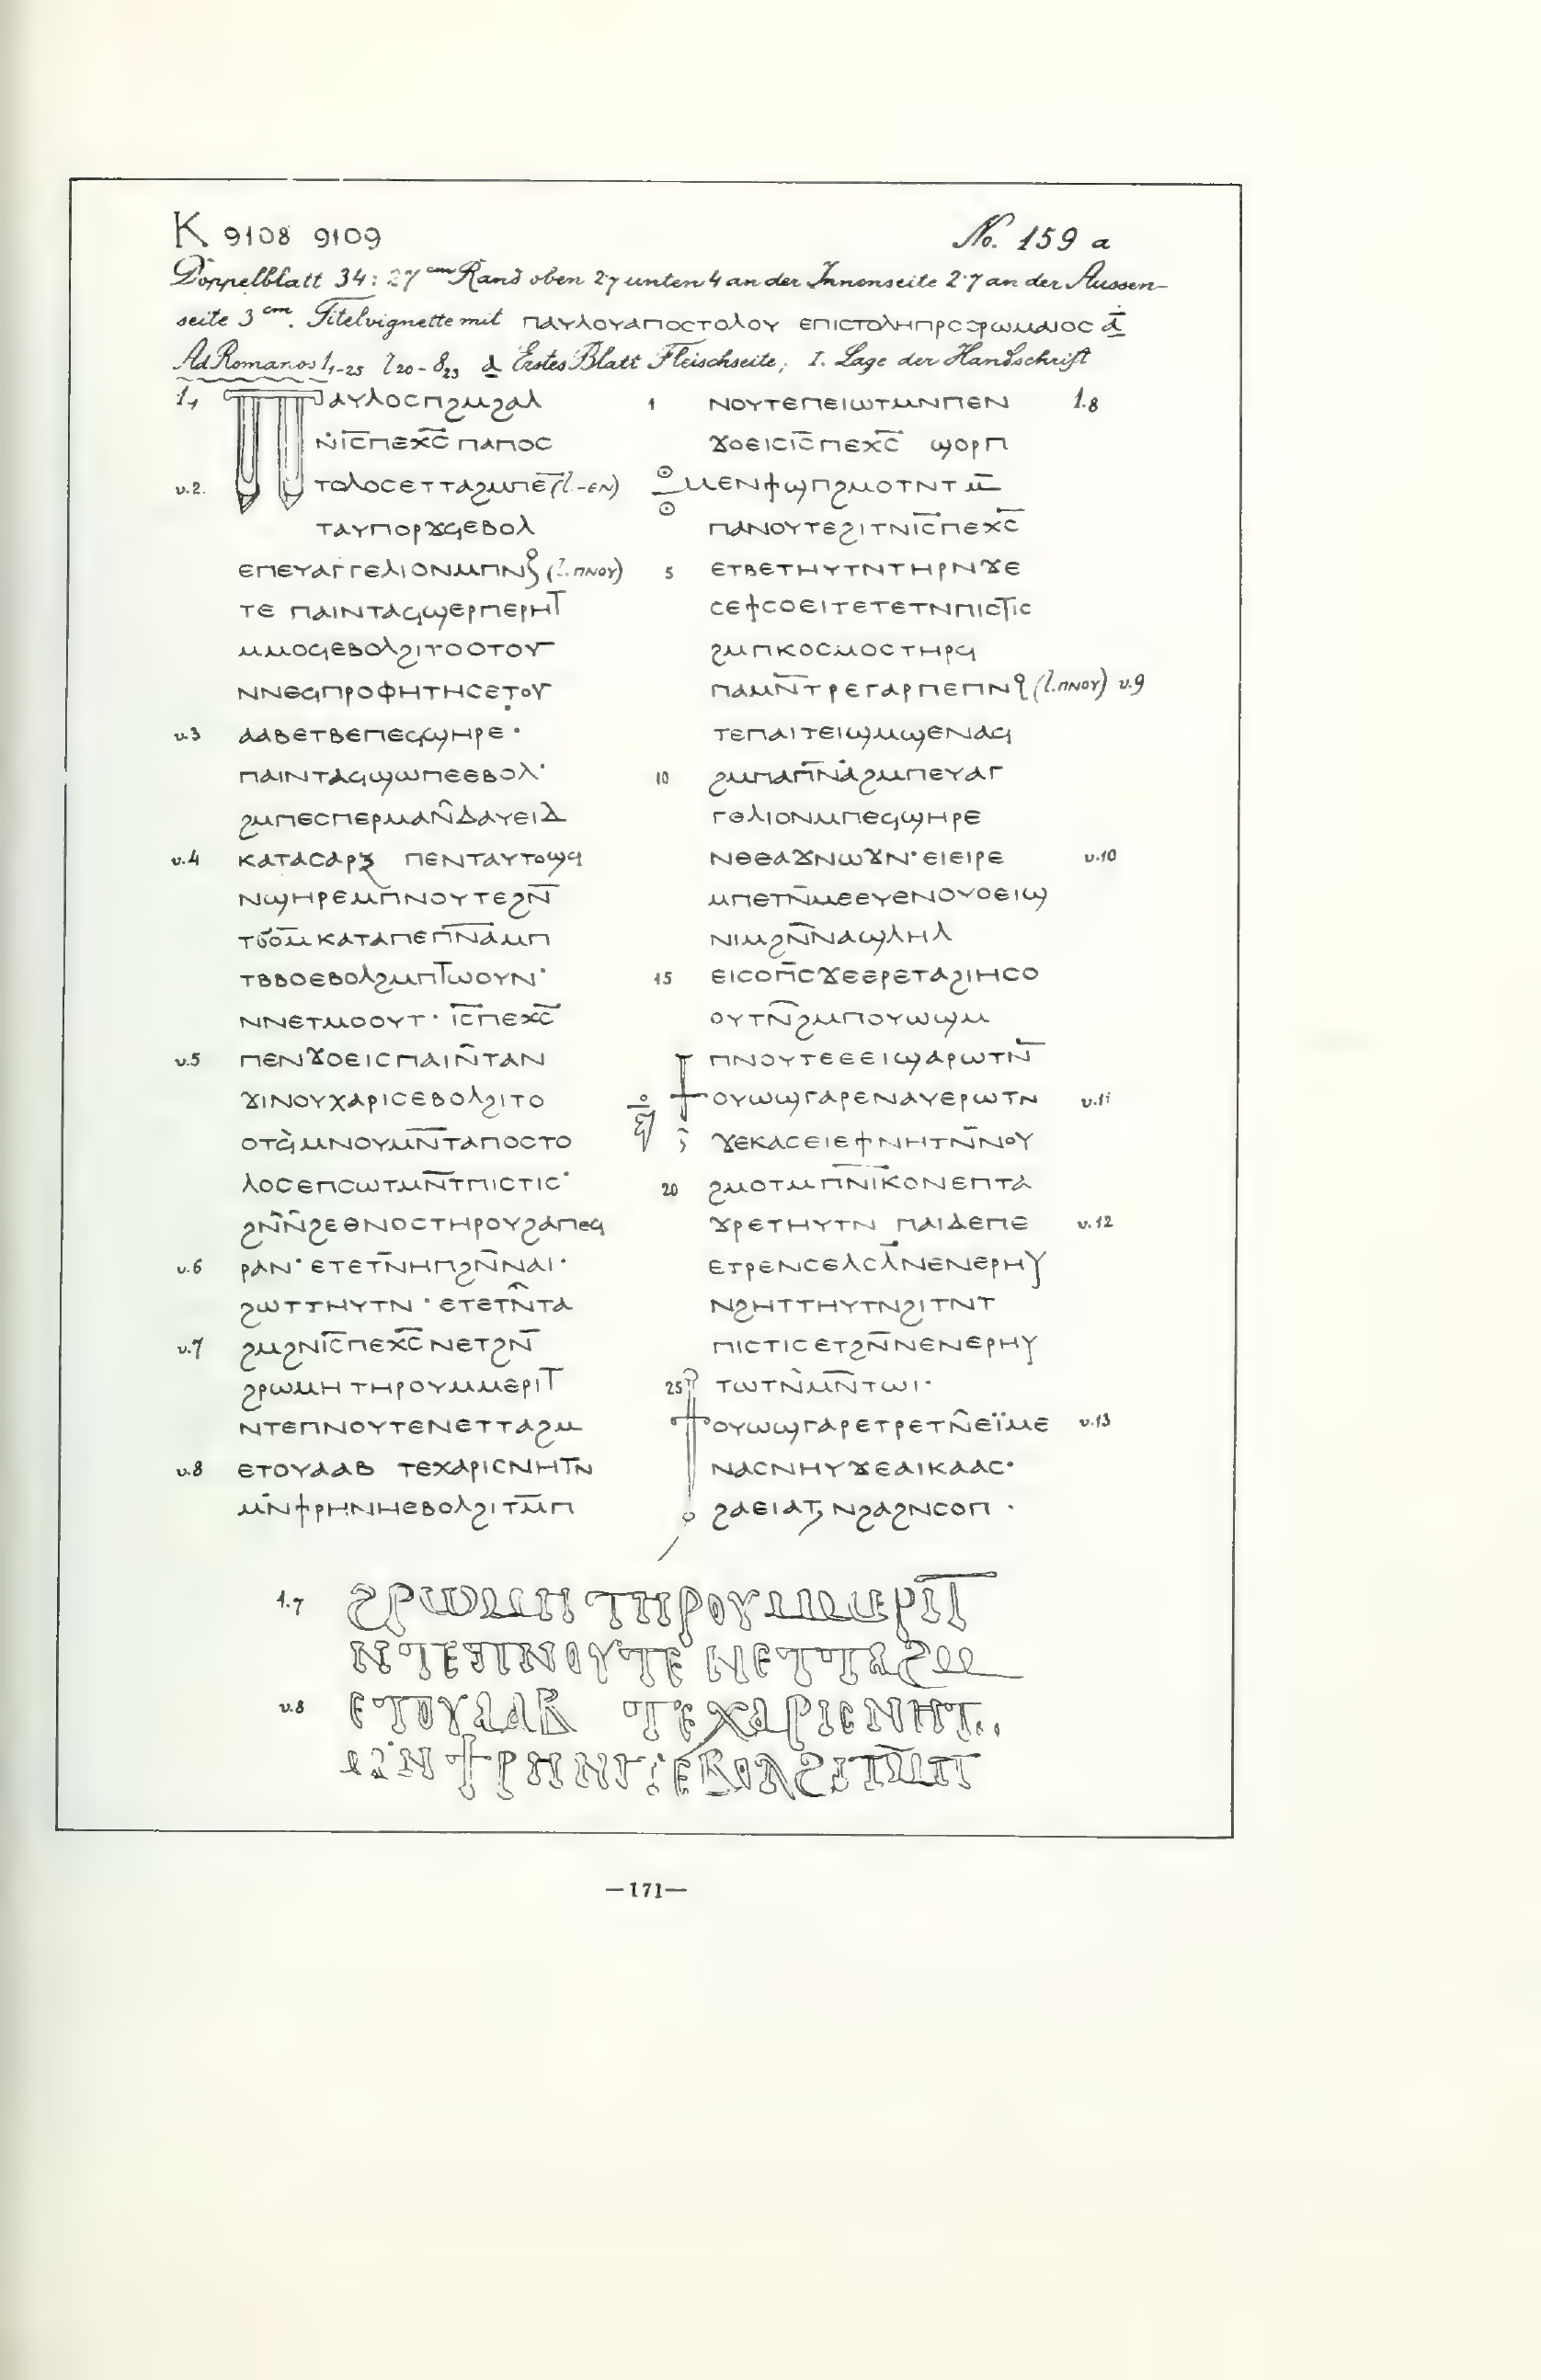 K 9108 9109
No. 159 a
Doppelblatt 34:27 cm Rand oben 2·7 unten 4 an der Innenseite 2·7 an der Aussen-
seite 3 cm. Titelvignette mit ⲡⲁⲩⲗⲟⲩⲁⲡⲟⲥⲧⲟⲗⲟⲩ ⲉⲡⲓⲥⲧⲟⲗⲏⲡⲣⲟⲥϩⲣⲱⲙⲁⲓⲟⲥ ⲁ̅
Ad Romanos 1,1-25 7 20-8 23 a Erstes Blatt Fleischseite; I. Lage der Handschrift
1,1 ⲡⲁⲩⲗⲟⲥⲡϩⲙϩⲁⲗ
ⲛ̇ⲓ̅ⲥ̅ⲡⲉⲭ̅ⲥ̅ ⲡⲁⲡⲟⲥ
v.2. ⲧⲟⲗⲟⲥⲉⲧⲧⲁϩⲙⲡⲉ̅ (l.-ⲉⲛ)
ⲧⲁⲩⲡⲟⲣϫϥⲉⲃⲟⲗ
ⲉⲡⲉⲩⲁⲅⲅⲉⲗⲓⲟⲛⲙⲡⲛⲟⲩ (l. ⲡⲛⲟⲩ)
ⲧⲉ ⲡⲁⲓⲛⲧⲁϥϣⲉⲣⲡⲉⲣⲏⲧ̅
ⲙⲙⲟϥⲉⲃⲟⲗϩⲓⲧⲟⲟⲧⲟⲩ
ⲛⲛⲉϥⲡⲣⲟⲫⲏⲧⲏⲥⲉⲧⲟⲩ
v.3 ⲁⲁⲃⲉⲧⲃⲉⲡⲉϥϣⲏⲣⲉ·
ⲡⲁⲓⲛⲧⲁϥϣⲱⲡⲉⲉⲃⲟⲗ·
ϩⲙⲡⲉⲥⲡⲉⲣⲙⲁⲛ̂ⲇⲁⲩⲉⲓⲇ
v.4 ⲕⲁⲧⲁⲥⲁⲣⲝ ⲡⲉⲛⲧⲁⲩⲧⲟϣϥ
ⲛϣⲏⲣⲉⲙⲡⲛⲟⲩⲧⲉϩⲛ̅
ⲧϭⲟⲙ̅ ⲕⲁⲧⲁⲡⲉⲡ̅ⲛ̅ⲁ̅ⲙⲡ
ⲧⲃⲃⲟⲉⲃⲟⲗϩⲙⲡⲧ̅ⲱⲟⲩⲛ·
ⲛⲛⲉⲧⲙⲟⲟⲩⲧ· ⲓ̅ⲥ̅ⲡⲉⲭ̅ⲥ̅
v.5 ⲡⲉⲛϫⲟⲉⲓⲥⲡⲁⲓⲛ̂ⲧⲁⲛ
ϫⲓⲛⲟⲩⲭⲁⲣⲓⲥⲉⲃⲟⲗϩⲓⲧⲟ
ⲟⲧϥ̀ⲙⲛⲟⲩⲙⲛ̅ⲧⲁⲡⲟⲥⲧⲟ
ⲗⲟⲥⲉⲡⲥⲱⲧⲙⲛ̅ⲧⲡⲓⲥⲧⲓⲥ·
ϩⲛ̂ⲛ̂ϩⲉⲑⲛⲟⲥⲧⲏⲣⲟⲩϩⲁⲡⲉϥ
v.6 ⲣⲁⲛ· ⲉⲧⲉⲧⲛ̅ⲏⲡϩⲛ̂ⲛⲁⲓ·
ϩⲱⲧⲧⲏⲩⲧⲛ· ⲉⲧⲉⲧⲛ̂ⲧⲁ
v.7 ϩⲙϩⲛⲓ̅ⲥ̅ⲡⲉⲭ̅ⲥ̅ ⲛⲉⲧϩⲛ̅
ϩⲣⲱⲙⲏ ⲧⲏⲣⲟⲩⲙⲙⲉⲣⲓⲧ̅
ⲛⲧⲉⲡⲛⲟⲩⲧⲉⲛⲉⲧⲧⲁϩⲙ
v.8 ⲉⲧⲟⲩⲁⲁⲃ ⲧⲉⲭⲁⲣⲓⲥⲛⲏⲧ̅ⲛ
ⲙⲛ̇ϯⲣⲏⲛⲏⲉⲃⲟⲗϩⲓⲧⲙ̅ⲡ
1 ⲛⲟⲩⲧⲉⲡⲉⲓⲱⲧⲙⲛⲡⲉⲛ 1.8
ϫⲟⲉⲓⲥⲓ̅ⲥ̅ⲡⲉⲭ̅ⲥ̅ ϣⲟⲣⲡ
ⲙⲉⲛϯϣⲡϩⲙⲟⲧⲛⲧⲙ̅
ⲡⲁⲛⲟⲩⲧⲉϩⲓⲧⲛⲓ̅ⲥ̅ⲡⲉⲭ̅ⲥ̅
5 ⲉⲧⲃⲉⲧⲏⲩⲧⲛⲧⲏⲣⲛϫⲉ
ⲥⲉϯⲥⲟⲉⲓⲧⲉⲧⲉⲧⲛⲡⲓⲥⲧ̅ⲓⲥ
ϩⲙⲡⲕⲟⲥⲙⲟⲥⲧⲏⲣϥ
ⲡⲁⲙⲛ̅ⲧⲣⲉⲅⲁⲣⲡⲉⲡⲛⲟⲩ (l. ⲡⲛⲟⲩ) v.9
ⲧⲉⲡⲁⲓⲧⲉⲓϣⲙϣⲉⲛⲁϥ
10 ϩⲙⲡⲁⲡ̅ⲛ̅ⲁ̇ϩⲙⲡⲉⲩⲁⲅ
ⲅⲉⲗⲓⲟⲛⲙⲡⲉϥϣⲏⲣⲉ
ⲛⲑⲉⲁϫⲛⲱϫⲛ·ⲉⲓⲉⲓⲣⲉ v.10
ⲙⲡⲉⲧⲛ̅ⲙⲉⲉⲩⲉⲛⲟⲩⲟⲉⲓϣ
ⲛⲓⲙϩⲛ̅ⲛⲁϣⲗⲏⲗ
15 ⲉⲓⲥⲟⲡ̅ⲥϫⲉⲉⲣⲉⲧⲁϩⲓⲏⲥⲟ
ⲟⲩⲧⲛ̅ϩⲙⲡⲟⲩⲱϣⲙ
ⲡⲛⲟⲩⲧⲉⲉⲉⲓϣⲁⲣⲱⲧⲛ̅
ϯⲟⲩⲱϣⲅⲁⲣⲉⲛⲁⲩⲉⲣⲱⲧⲛ v.11
ϫⲉⲕⲁⲥⲉⲓⲉϯⲛⲏⲧⲛ̅ⲛⲟⲩ
20 ϩⲙⲟⲧⲙⲡ̅ⲛ̅ⲓ̅ⲕⲟⲛⲉⲡⲧⲁ
ϫⲣⲉⲧⲏⲩⲧⲛ ⲡⲁⲓⲇⲉⲡⲉ v.12
ⲉⲧⲣⲉⲛⲥⲉⲗⲥⲗ̅ⲛⲉⲛⲉⲣⲏⲩ
ⲛϩⲏⲧⲧⲏⲩⲧⲛϩⲓⲧⲛⲧ
ⲡⲓⲥⲧⲓⲥⲉⲧϩⲛ̅ⲛⲉⲛⲉⲣⲏⲩ
25 ⲧⲱⲧⲛ̀ⲙⲛ̅ⲧⲱⲓ·
ϯⲟⲩⲱϣⲅⲁⲣⲉⲧⲣⲉⲧⲛ̂ⲉⲓ̈ⲙⲉ v.13
ⲛⲁⲥⲛⲏⲩϫⲉⲁⲓⲕⲁⲁⲥ·
ϩⲁⲉⲓⲁⲧ ⲛϩⲁϩⲛⲥⲟⲡ ·
1.7 ϩⲣⲱⲙⲏ ⲧⲏⲣⲟⲩⲙⲙⲉⲣⲓⲧ̅
ⲛⲧⲉⲡⲛⲟⲩⲧⲉ ⲛⲉⲧⲧⲁϩⲙ
v.8 ⲉⲧⲟⲩⲁⲁⲃ ⲧⲉⲭⲁⲣⲓⲥⲛⲏⲧ..
ⲙⲛ̇ϯⲣⲏⲛⲏⲉⲃⲟⲗϩⲓⲧⲙ̅ⲡ
—171—